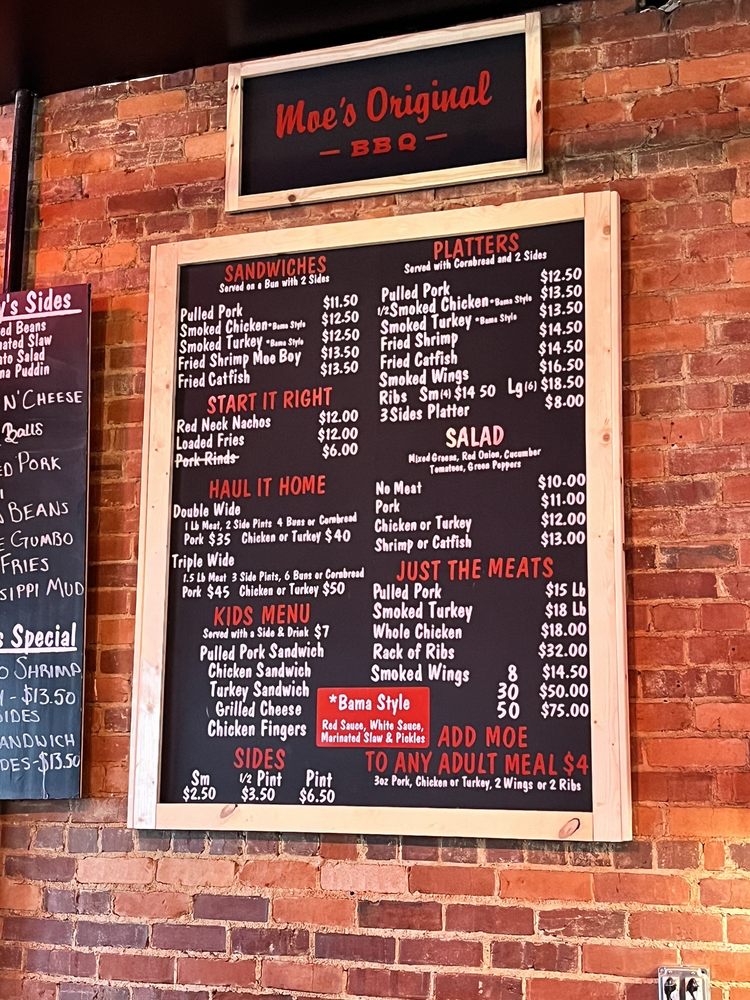 Moe's Original
BBQ
SANDWICHES
Served on a Bun with 2 Sides
Pulled Pork $11.50
Smoked Chicken *Bama Style $12.50
Smoked Turkey *Bama Style $12.50
Fried Shrimp Moe Boy $13.50
Fried Catfish $13.50
START IT RIGHT
Red Neck Nachos $12.00
Loaded Fries $12.00
Pork Rinds $6.00
HAUL IT HOME
Double Wide
1 Lb Meat, 2 Side Pints 4 Buns or Cornbread
Pork $35 Chicken or Turkey $40
Triple Wide
1.5 Lb Meat 3 Side Pints, 6 Buns or Cornbread
Pork $45 Chicken or Turkey $50
KIDS MENU
Served with a Side & Drink $7
Pulled Pork Sandwich
Chicken Sandwich
Turkey Sandwich
Grilled Cheese
Chicken Fingers
SIDES
Sm 1/2 Pint Pint
$2.50 $3.50 $6.50
PLATTERS
Served with Cornbread and 2 Sides
Pulled Pork $12.50
1/2 Smoked Chicken *Bama Style $13.50
Smoked Turkey *Bama Style $13.50
Fried Shrimp $14.50
Fried Catfish $14.50
Smoked Wings $16.50
Ribs Sm (4) $14 50 Lg (6) $18.50
3 Sides Platter $8.00
SALAD
Mixed Greens, Red Onion, Cucumber
Tomatoes, Green Peppers
No Meat $10.00
Pork $11.00
Chicken or Turkey $12.00
Shrimp or Catfish $13.00
JUST THE MEATS
Pulled Pork $15 Lb
Smoked Turkey $18 Lb
Whole Chicken $18.00
Rack of Ribs $32.00
Smoked Wings 8 $14.50
30 $50.00
50 $75.00
*Bama Style
Red Sauce, White Sauce,
Marinated Slaw & Pickles
ADD MOE
TO ANY ADULT MEAL $4
3oz Pork, Chicken or Turkey, 2 Wings or 2 Ribs
Sides
Beans
Slaw
Salad
Puddin
N' CHEESE
BALLS
PORK
BEANS
GUMBO
FRIES
MUD
Special
SHRIMP
- $13.50
SIDES
-$13.50